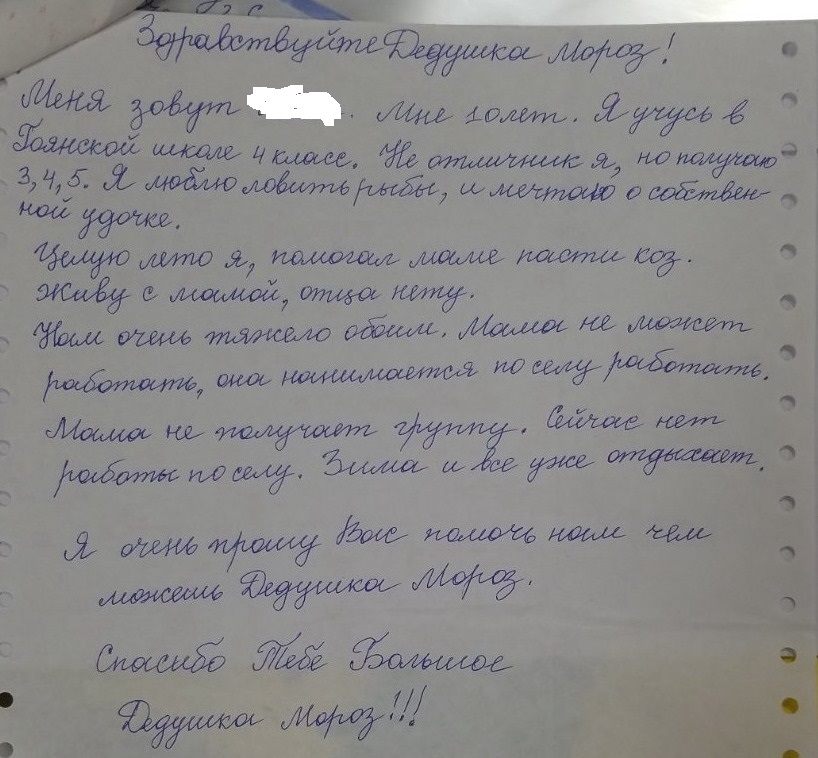 Здравствуйте Дедушка Мороз!
Меня зовут . Мне 10 лет. Я учусь в
Гоянской школе 4 класс. Не отличник я, но получаю
3,4,5. Я люблю ловить рыбы, и мечтаю о собствен-
ной удочке.
Целую лето я, помогал маме пасти коз.
Живу с мамой, отца нету.
Нам очень тяжело обоим. Мама не может
работать, она нанимается по селу работать.
Мама не получает группу. Сейчас нет
работы по селу. Зима и все уже отдыхает.
Я очень прошу Вас помочь нам чем
можешь Дедушка Мороз.
Спасибо Тебе Большое
Дедушка Мороз!!!